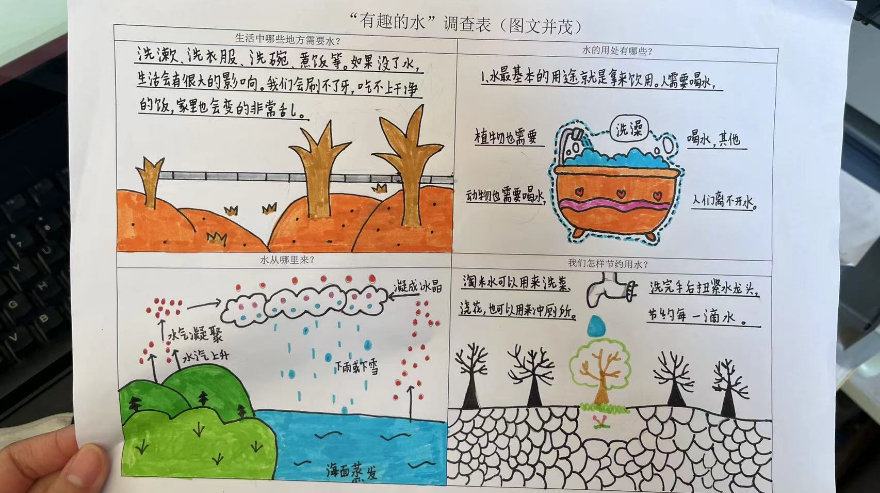 “有趣的水”调查表（图文并茂）
生活中哪些地方需要水？
洗漱、洗衣服、洗碗、煮饭等。如果没了水，
生活会有很大的影响。我们会刷不了牙，吃不上干净
的饭，家里也会变的非常乱。
水的用处有哪些？
1.水最基本的用途就是拿来饮用。人需要喝水，
植物也需要
洗澡
喝水，其他
动物也需要喝水，
人们离不开水。
水从哪里来？
凝成冰晶
水气凝聚
水汽上升
下雨或下雪
海面蒸发
我们怎样节约用水？
淘米水可以用来洗菜
浇花，也可以用来冲厕所。
洗完手后扭紧水龙头，
节约每一滴水。